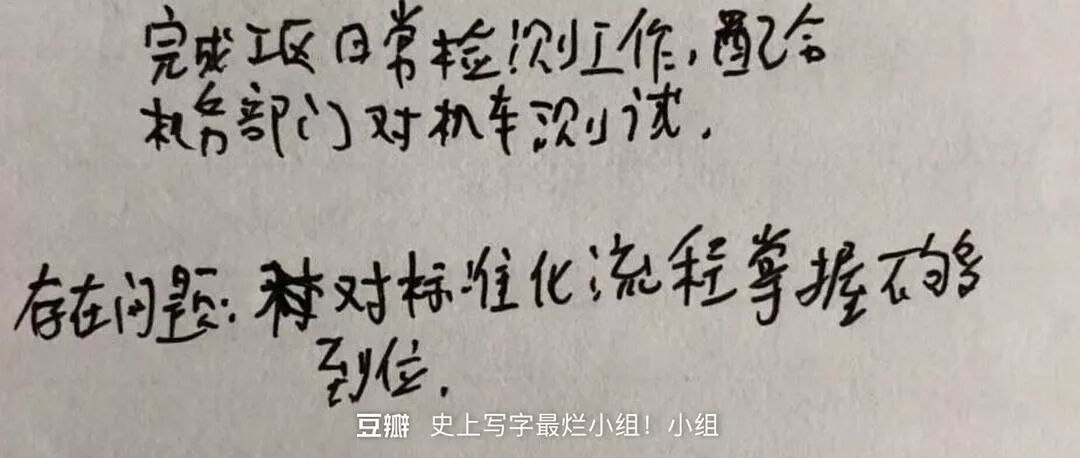 完成工区日常检测工作，配合
机务部门对机车测试.
存在问题：对标准化流程掌握不够
到位.
豆瓣 史上写字最烂小组！小组